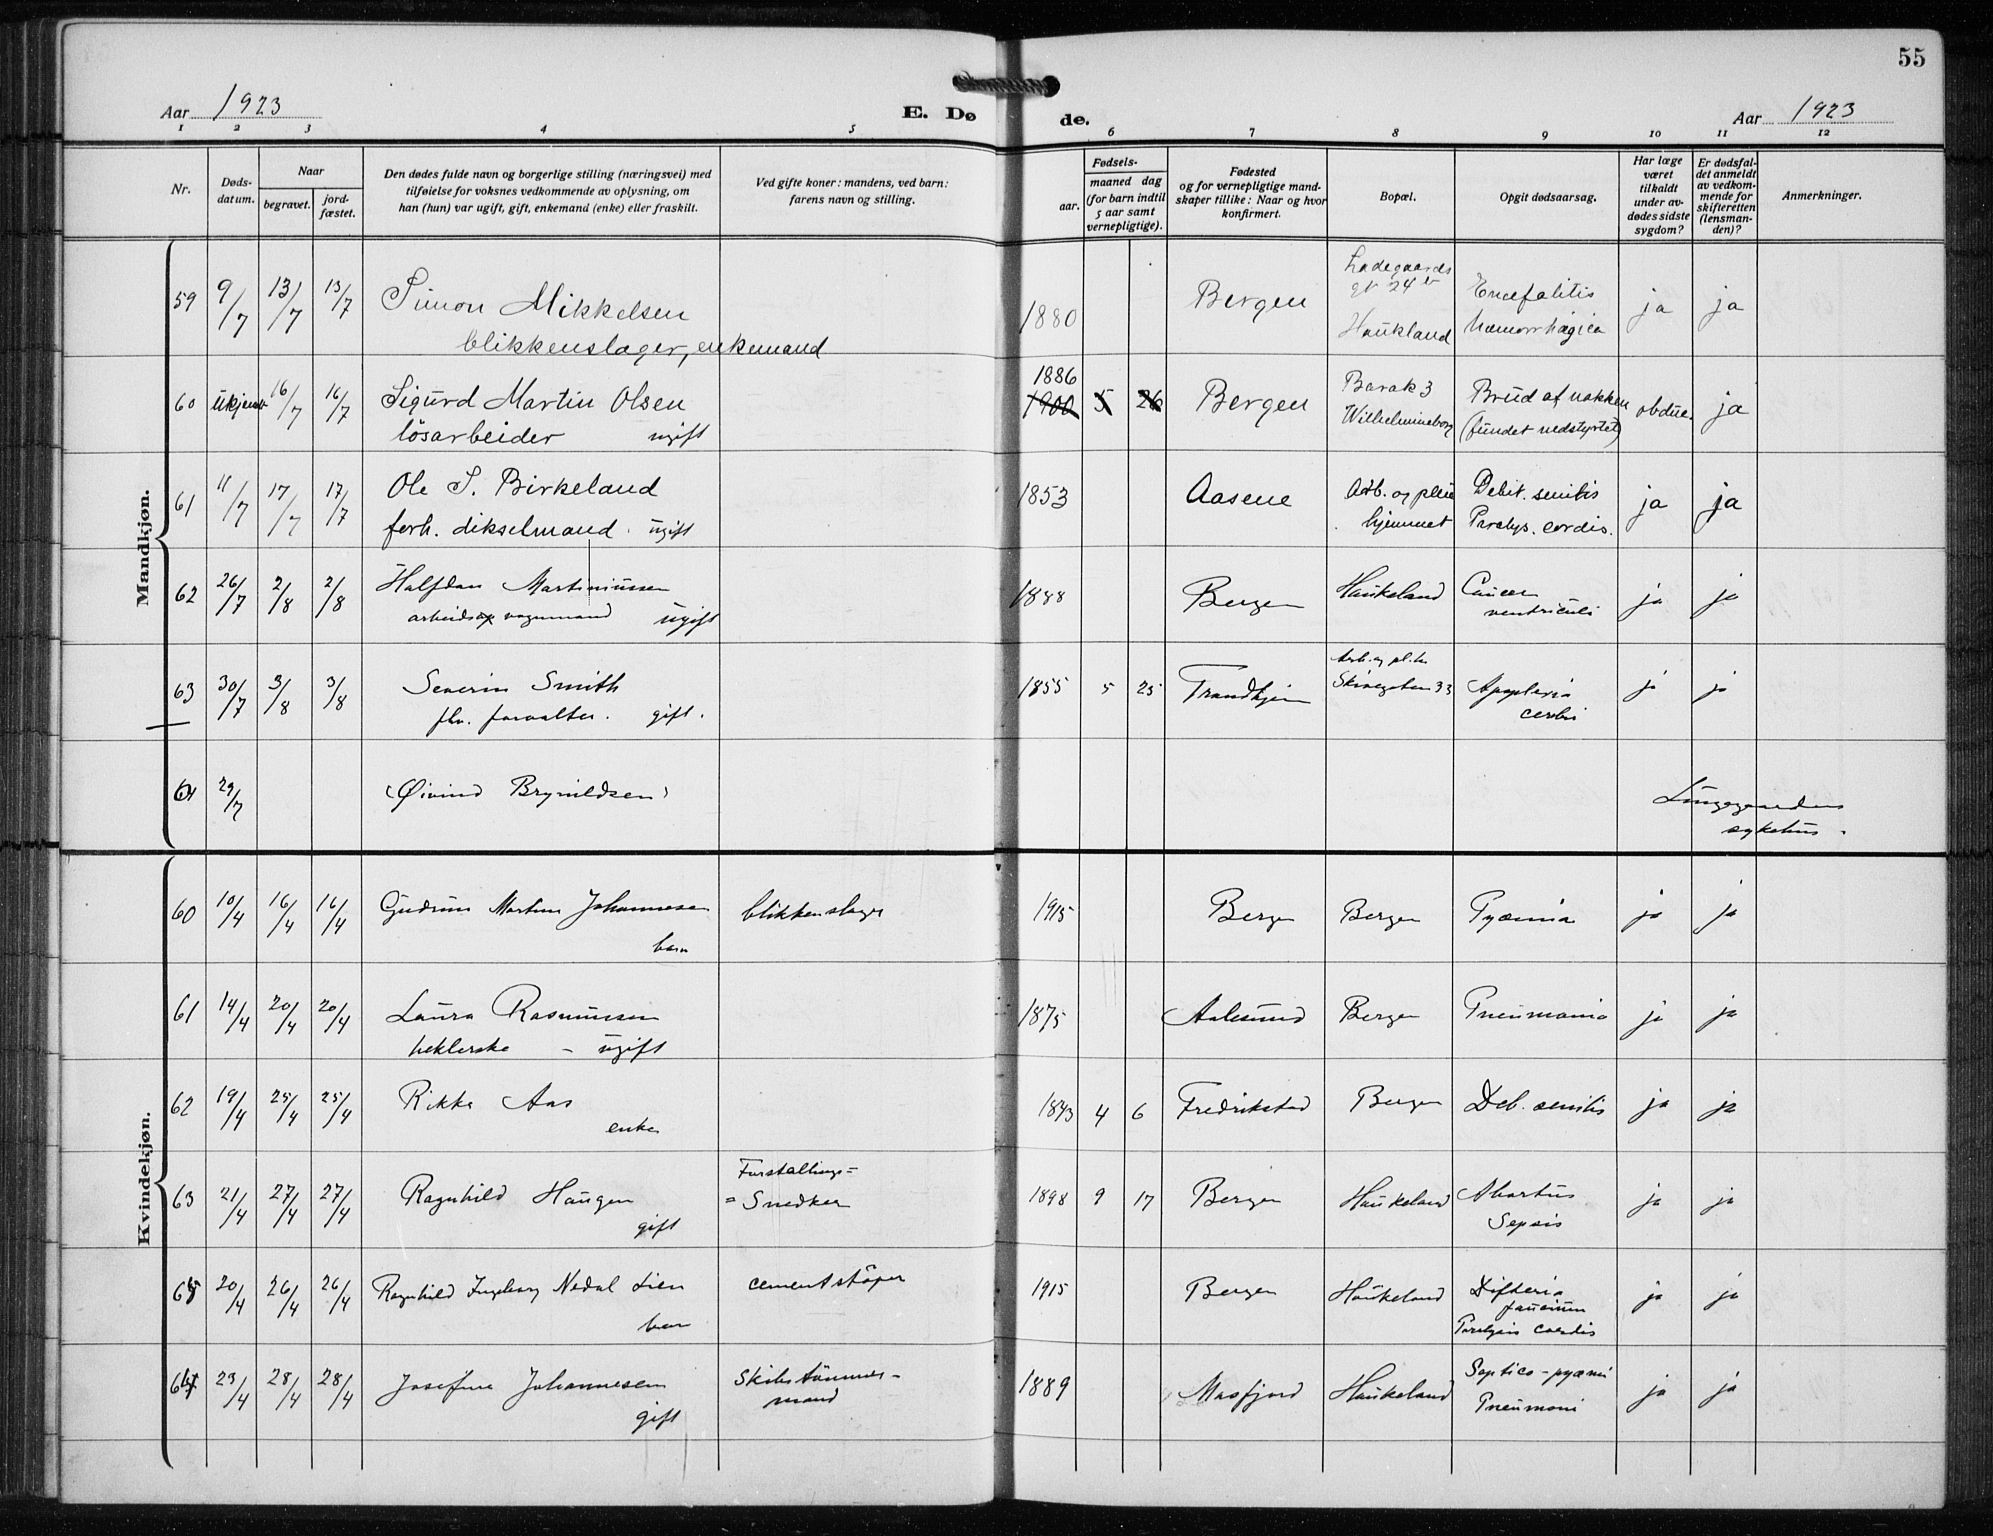 55
Aar 1923
E. Dø de.
Aar 1923
1 2 3 4 5 6 7 8 9 10 11 12
Nr.
Døds-
datum.
Naar
begravet.
jord-
fæstet.
Den dødes fulde navn og borgerlige stilling (næringsvei) med
tilføielse for voksnes vedkommende av oplysning, om
han (hun) var ugift, gift, enkemand (enke) eller fraskilt.
Ved gifte koner: mandens, ved barn:
farens navn og stilling.
Fødsels-
aar.
maaned dag
(for barn indtil
5 aar samt
vernepligtige).
Fødested
og for vernepligtige mand-
skaper tillike: Naar og hvor
konfirmert.
Bopæl.
Opgit dødsaarsag.
Har læge
været
tilkaldt
under av-
dødes sidste
sygdom?
Er dødsfal-
det anmeldt
av vedkom-
mende for
skifteretten
(lensman-
den)?
Anmerkninger.
Mandkjøn.
59 9/7 13/7 13/7 Simon Mikkelsen 1880 Bergen Ladegaards
gt 24 b
Haukland Encefalitis
hæmorrhagica ja ja
blikkenslager, enkemand
60 ukjent 16/7 16/7 Sigurd Martin Olsen 1886
1900 5 26 Bergen Barak 3
Wilhelmineborg Brud af nakken
(fundet nedstyrtet) obduc. ja
løsarbeider ugift
61 11/7 17/7 17/7 Ole S. Birkeland 1853 Aasene Arb. og pleie
hjemmet Debit. senilis
Paralys. cordis. ja ja
forh. dikselmand ugift
62 26/7 2/8 2/8 Halfdan Martiniussen 1888 Bergen Haukeland Cancer
ventriculi ja ja
vognmand ugift
63 30/7 3/8 3/8 Severin Smith 1855 5 25 Trondhjem Arb. og pl.hj.
Skivegaten 33 Apoplexia
cerebri ja ja
fhv. forvalter. gift.
64 29/7 (Øivind Brynildsen) Lungegaardens
sykehus.
Kvindekjøn.
60 10/4 16/4 16/4 Gudrun Martine Johannesen blikkenslager 1915 Bergen Bergen Pyæmia ja ja
barn
61 14/4 20/4 20/4 Laura Rasmussen 1875 Aalesund Bergen Pneumonia ja ja
heklerske - ugift
62 19/4 25/4 25/4 Rikka Aas 1843 4 6 Fredrikstad Bergen Deb. senilis ja ja
enke
63 21/4 27/4 27/4 Ragnhild Haugen Forstallings=
= Snedker 1898 9 17 Bergen Haukeland Abortus
Sepsis ja ja
gift
65 20/4 26/4 26/4 Ragnhild Ingeborg Nedal Lien cementstøper 1915 Bergen Haukeland Difteria
faucium
Paralysis cordis ja ja
barn
64 23/4 28/4 28/4 Josefine Johannesen Skibstømmer-
mand 1889 Masfjord Haukeland Septico-pyæmi
Pneumoni ja ja
gift